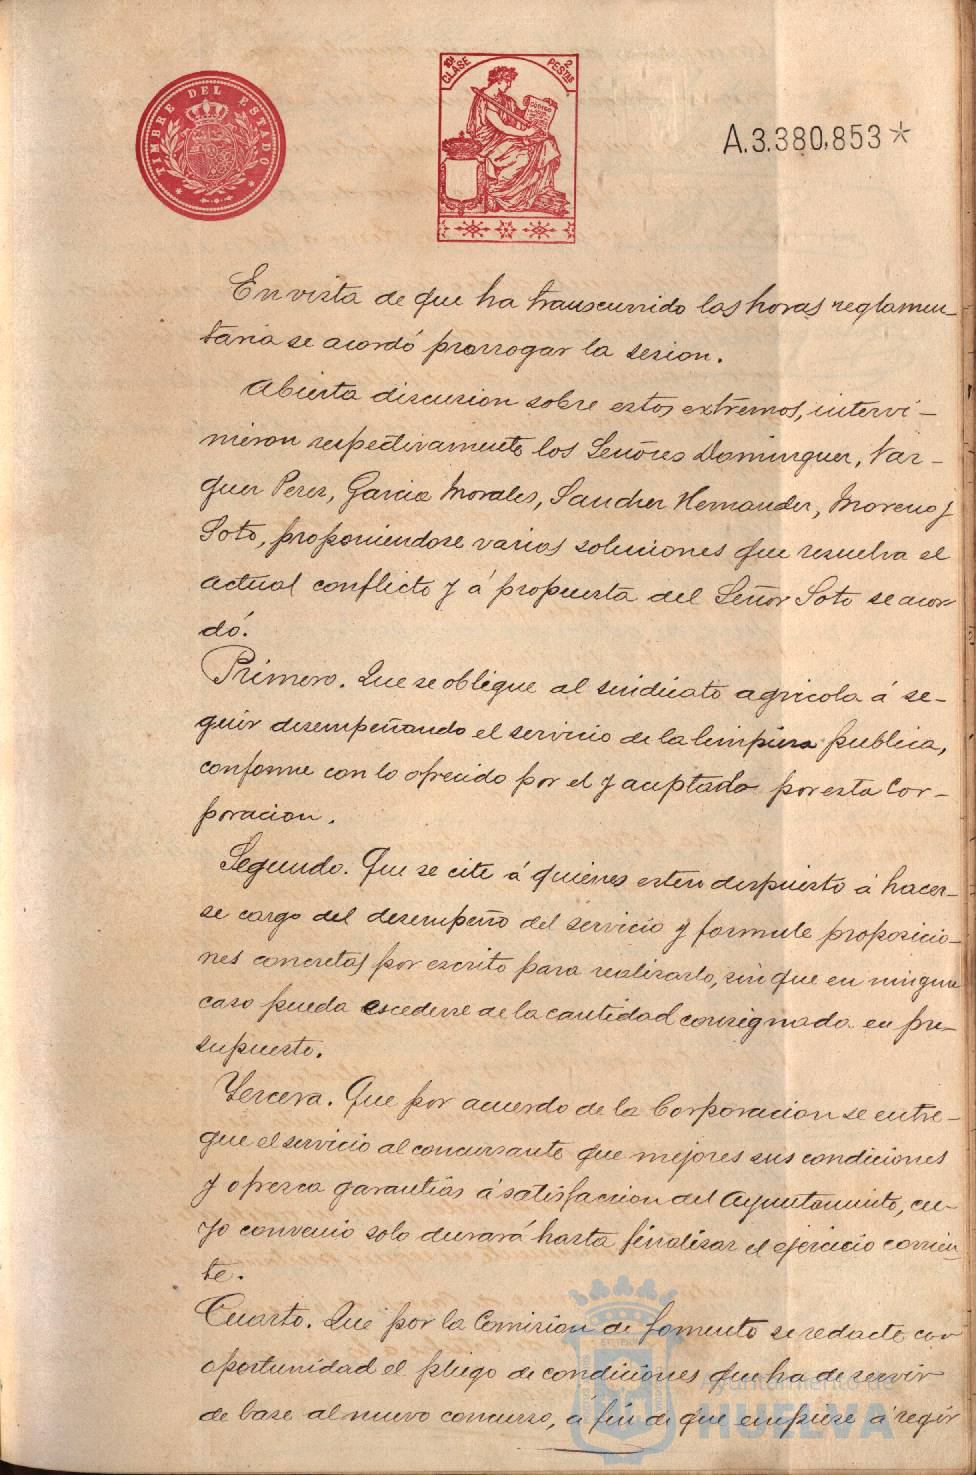 TIMBRE DEL ESTADO
10ª CLASE 2 PESTAS
CODIGO
A.3.380,853*
En vista de que ha transcurrido las horas reglamen-
taria se acordó prorrogar la sesion.
Abierta discusion sobre estos extremos, intervi-
nieron respectivamente los Señores Dominguez, Vaz-
quez Perez, Garcia Morales, Sanchez Hernandez, Moreno y
Soto, proponiendose varias soluciones que resuelva el
actual conflicto y á propuesta del Señor Soto se acor-
dó.
Primero. Que se obligue al sindicato agricola á se-
guir desempeñando el servicio de la limpieza publica,
conforme con lo ofrecido por el y aceptado por esta Cor-
poracion.
Segundo. Que se cite á quienes esten dispuesto á hacer-
se cargo del desempeño del servicio y formule proposicio-
nes concretas por escrito para realizarlo, sin que en ningun
caso pueda escederse de la cantidad consignada en pre-
supuesto.
Tercera. Que por acuerdo de la Corporacion se entre-
gue el servicio al concursante que mejores sus condiciones
y ofrezca garantias á satisfaccion del Ayuntamiento, cu-
yo convenio solo durará hasta finalizar el ejercicio corrien-
te.
Cuarto. Que por la Comision de fomento se redacte con
oportunidad el pliego de condiciones que ha de servir
de base al nuevo concurso, á fin de que empiese á regir
Ayuntamiento de
HUELVA